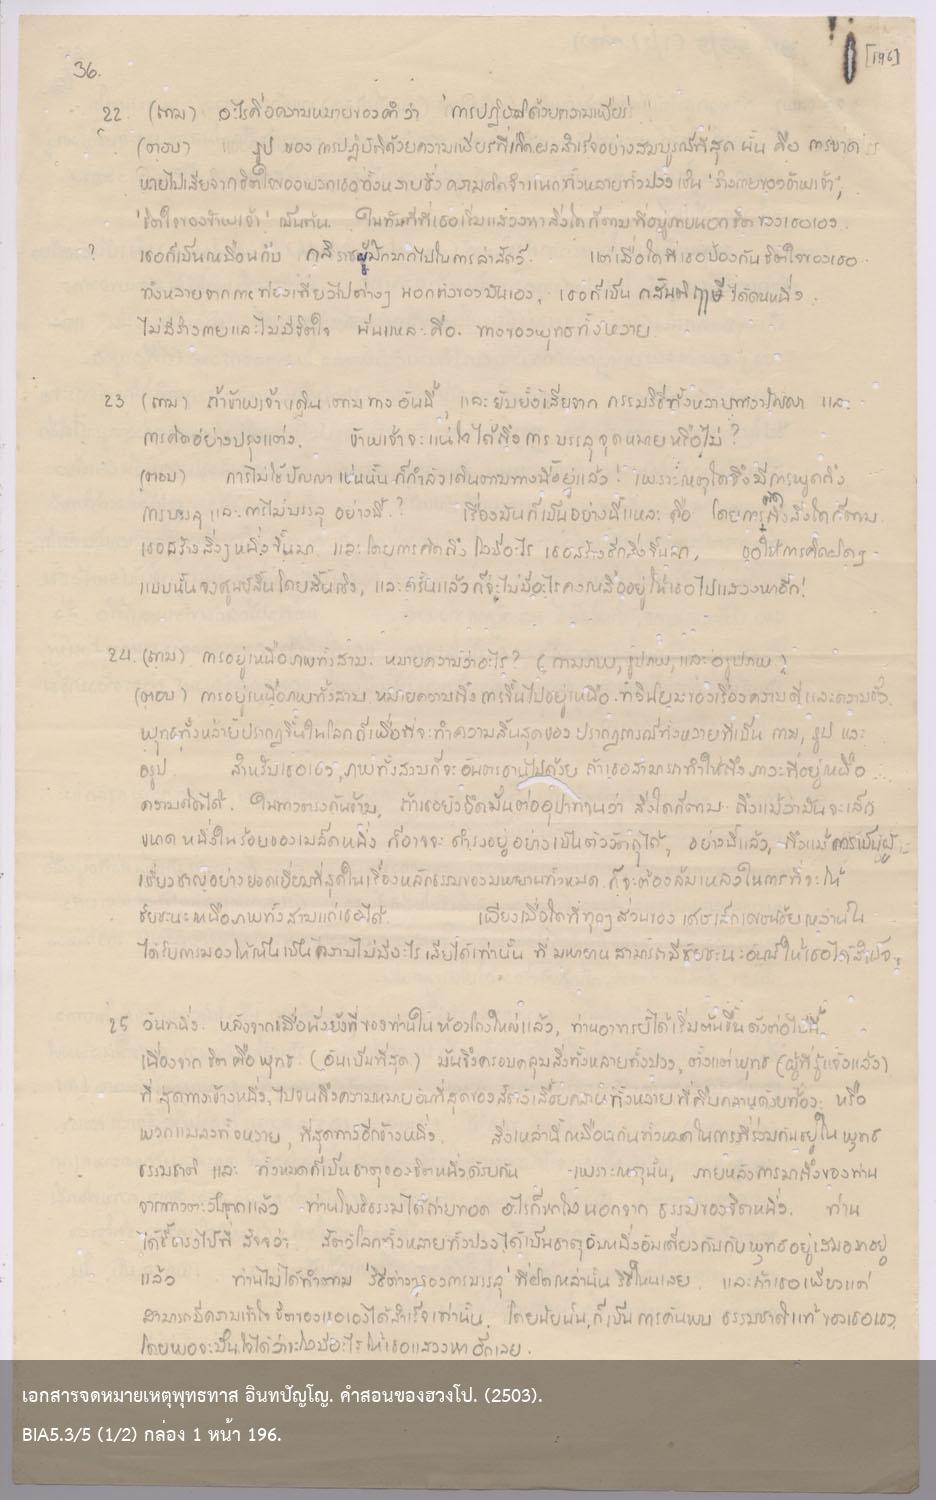 36. [196]
22. (ถาม) อะไรคือความหมายของคำว่า "การปฏิบัติด้วยความเพียร์"
(ตอบ) รูป ของ การปฏิบัติด้วยความเพียรที่เกิดผลสำเร็จอย่างสมบูรณ์ที่สุด นั้น คือ การขาด
หายไปเสียจากจิตใจของพวกเธอทั้งหลายซึ่ง ความคิดจำแนกทั้งหลายทั้งปวง เช่น 'ร่างกายของข้าพเจ้า',
'จิตใจของข้าพเจ้า' เป็นต้น. ในทันทีที่เธอเริ่มแสวงหาสิ่งใดก็ตามที่อยู่ภายนอกจิตของเธอเอง
? เธอก็เป็นเหมือนกับ กลิราชผู้มักมากไปในการล่าสัตว์. แต่เมื่อใดที่เธอป้องกันจิตใจของเธอ
ทั้งหลายจากการท่องเที่ยวไปต่างๆ นอกตัวของมันเอง, เธอก็เป็น กสันติฤๅษี ได้คนหนึ่ง.
ไม่มีร่างกายและไม่มีจิตใจ นั่นแหละคือ ทางของพุทธทั้งหลาย
23 (ถาม) ถ้าข้าพเจ้าเดิน ตามทาง อันนี้, และยับยั้งเสียจาก กรรมวิธีทั้งหลายทางปัญญา และ
การคิดอย่างปรุงแต่ง. ข้าพเจ้าจะแน่ใจได้ถึงการบรรลุจุดหมายหรือไม่?
(ตอบ) การไม่ใช้ปัญญาเช่นนั้น ก็กำลังเดินตามทางนี้อยู่แล้ว! เพราะเหตุใดจึงมีการพูดถึง
การบรรลุ และการไม่บรรลุ อย่างนี้.? เรื่องมันก็เป็นอย่างนี้แหละ คือ โดยการคิดถึงสิ่งใดก็ตาม
เธอสร้างสิ่งๆหนึ่งขึ้นมา และโดยการคิดถึง ไม่มีอะไร เธอสร้างอีกสิ่งขึ้นมา, ขอให้การคิดผิดๆ
แบบนั้น จงสูญสิ้นโดยสิ้นเชิง, และครั้นแล้ว ก็จะไม่มีอะไรคงเหลืออยู่ ให้เธอไปแสวงหาอีก!
24. (ถาม) การอยู่เหนือภพทั้งสาม. หมายความว่าอะไร? (กามภพ, รูปภพ, และอรูปภพ)
(ตอบ) การอยู่เหนือภพทั้งสาม หมายความถึง การขึ้นไปอยู่เหนือ คำนิยมของเรื่องความดีและความชั่ว.
พุทธทั้งหลายปรากฏขึ้นในโลกก็เพื่อที่จะทำความสิ้นสุดของ ปรากฏการณ์ทั้งหลายที่เป็น กาม, รูป และ
อรูป สำหรับเธอเอง, ภพทั้งสามก็จะอันตรธานไปด้วย ถ้าเธอสามารถทำให้ถึง ภาวะที่อยู่เหนือ
ความคิดได้. ในทางตรงกันข้าม, ถ้าเธอยังยึดมั่นต่ออุปาทานว่า สิ่งใดก็ตาม ถึงแม้ว่ามันจะเล็ก
ขนาด หนึ่งในร้อยของเมล็ดหนึ่ง ก็อาจจะ ดำรงอยู่อย่างเป็นตัววัตถุได้, อย่างนี้แล้ว, ถึงแม้การเป็นผู้
เชี่ยวชาญอย่างยอดเยี่ยมที่สุดในเรื่องหลักธรรมของมหายานทั้งหมด ก็จะต้องล้มเหลวในการที่จะให้
ชัยชนะเหนือภพทั้งสามแก่เธอได้. เพียงเมื่อใดที่ทุกๆ ส่วนของ เศษเล็กเศษน้อยเหล่านั้น
ได้รับการมองให้เห็น เป็นความไม่มีอะไร เสียได้เท่านั้น ที่ มหายาน สามารถมีชัยชนะอันนี้ ให้เธอได้สำเร็จ.
25 วันหนึ่ง. หลังจากเมื่อนั่งยังที่ของท่านในห้องโถงใหญ่แล้ว, ท่านอาจารย์ได้เริ่มต้นขึ้น ดังต่อไปนี้
เนื่องจาก จิต คือ พุทธ (อันเป็นที่สุด) มันจึงครอบคลุมสิ่งทั้งหลายทั้งปวง, ตั้งแต่พุทธ (ผู้ที่รู้แจ้งแล้ว)
ที่สุดทางข้างหนึ่ง, ไปจนถึงความหมายอันที่สุดของสัตว์เลื้อยคลานทั้งหลายที่คืบคลานด้วยท้อง หรือ
พวกแมลงทั้งหลาย, ที่สุดทางอีกข้างหนึ่ง. สิ่งเหล่านี้เหมือนกันทั้งหมดในการที่ร่วมกันอยู่ใน พุทธ
ธรรมชาติ และ ทั้งหมดก็เป็นธาตุของจิตหนึ่งด้วยกัน เพราะเหตุนั้น, ภายหลังการมาถึงของท่าน
จากทางตะวันตกแล้ว ท่านโพธิธรรมได้ถ่ายทอด อะไรก็หาไม่ นอกจาก ธรรมของจิตหนึ่ง. ท่าน
ได้ชี้ตรงไปที่ สัจจะว่า สัตว์โลกทั้งหลายทั้งปวงได้เป็นธาตุอันหนึ่งอันเดียวกันกับพุทธอยู่เสมอมาอยู่
แล้ว ท่านไม่ได้ทำตาม 'วิธีต่างๆของการบรรลุ' ที่ผิดเหล่านั้น วิธีไหนเลย. และถ้าเธอเพียงแต่
สามารถมีความเข้าใจ จิตของเธอเองได้สำเร็จเท่านั้น, โดยนัยนั้น, ก็เป็น การค้นพบ ธรรมชาติแท้ ของเธอเอง
โดยพอจะมั่นใจได้ว่าจะไม่มีอะไรให้เธอแสวงหา อีกเลย.
เอกสารจดหมายเหตุพุทธทาส อินทปัญโญ. คำสอนของฮวงโป. (2503).
BIA5.3/5 (1/2) กล่อง 1 หน้า 196.